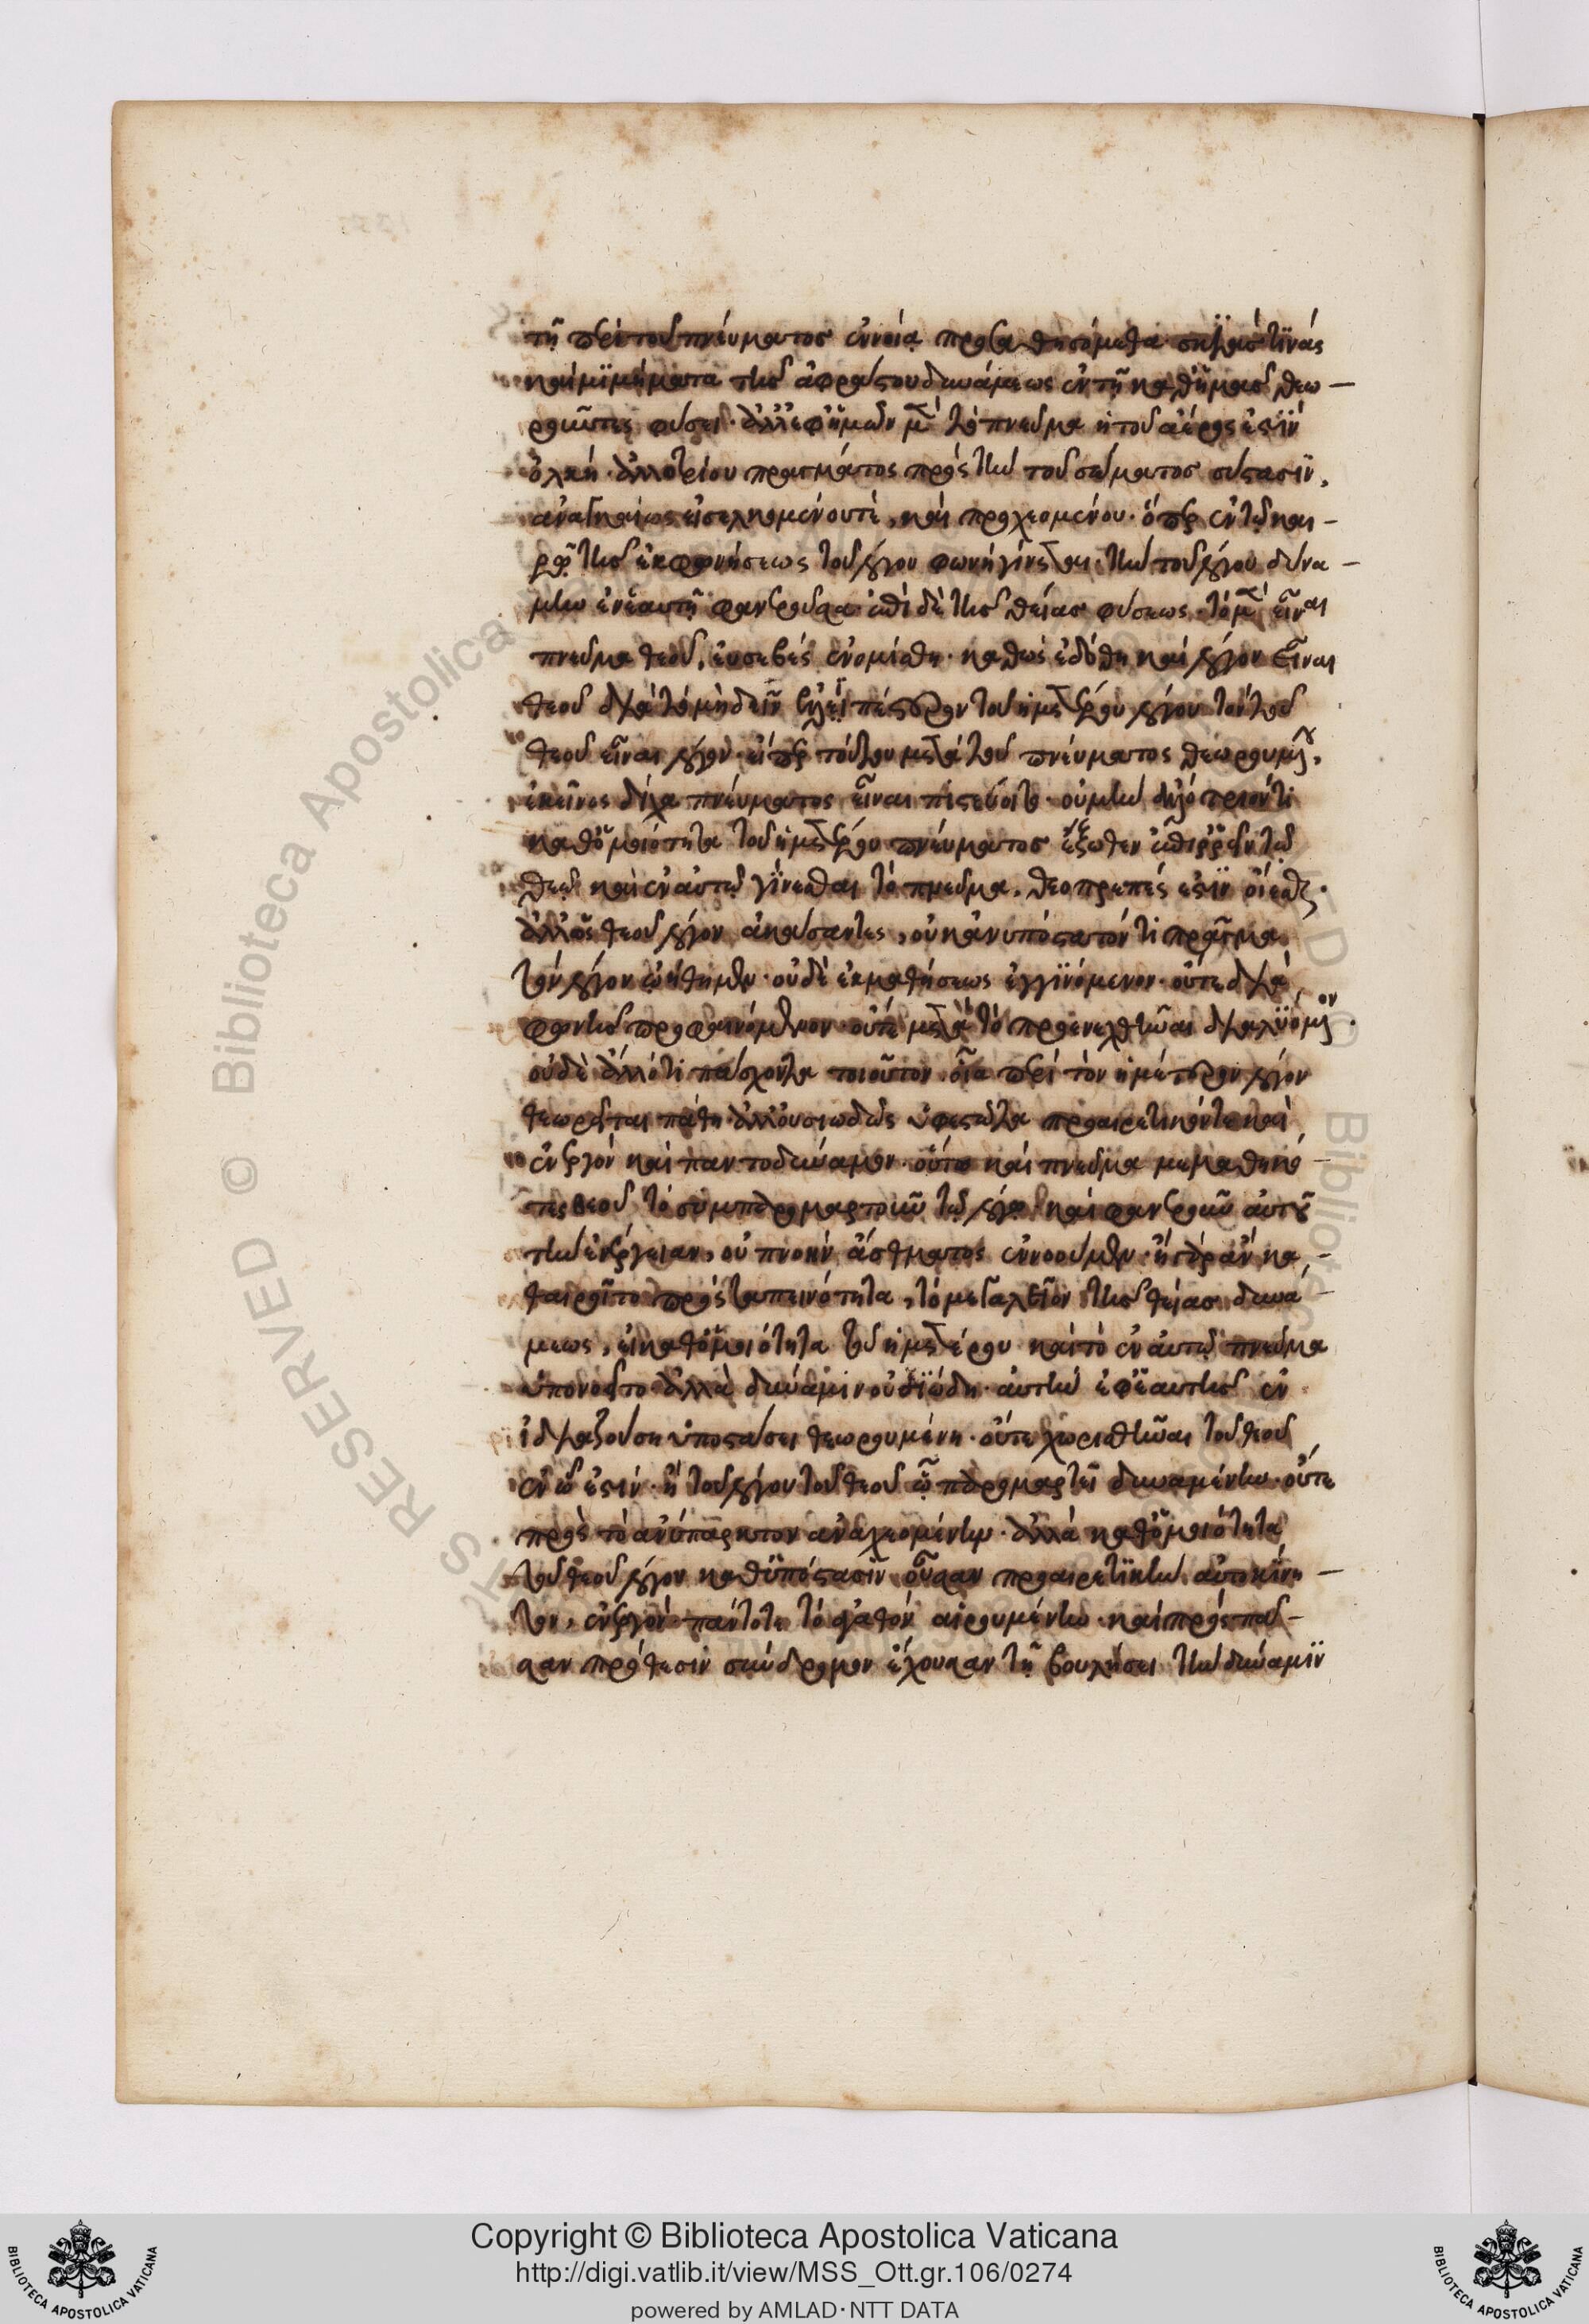 τῇ περὶ τοῦ πνεύματος ἐννοίᾳ προσαχθησόμεθα σκιάς τινάς
καὶ μιμήματα τῆς ἀφράστου δυνάμεως ἐν τῇ καθ' ἡμᾶς θεω-
ροῦντες φύσει· ἀλλ' ἐφ' ἡμῶν μὲν τὸ πνεῦμα ἡ τοῦ ἀέρος ἐστὶν
ὁλκή· ἀλλοτρίου πράγματος πρὸς τὴν τοῦ σώματος σύστασιν,
ἀναγκαίως εἰσελκομένου τὲ, καὶ προχεομένου· ὅπερ ἐν τῷ και-
ρῷ τῆς ἐκφωνήσεως τοῦ λόγου φωνὴ γίνεται· τὴν τοῦ λόγου δύνα-
μιν ἐν ἑαυτῇ φανεροῦσα· ἐπὶ δὲ τῆς θείας φύσεως τὸ μὲν εἶναι
πνεῦμα θεοῦ, εὐσεβὲς ἐνομίσθη· καθὼς ἐδόθη καὶ λόγον εἶναι
θεοῦ διὰ τὸ μὴ δεῖν ἐλλειπέστερον τοῦ ἡμετέρου λόγου τὸν τοῦ
θεοῦ εἶναι λόγον· εἴπερ τούτου μετὰ τοῦ πνεύματος θεωρουμένου,
ἐκεῖνος δίχα πνεύματος εἶναι πιστεύοιτο· οὐ μὴν ἀλλότριόν τι
καθ' ὁμοιότητα τοῦ ἡμετέρου πνεύματος ἔξωθεν ἐπιρρεῖν τῷ
θεῷ καὶ ἐν αὐτῷ γίνεσθαι τὸ πνεῦμα, θεοπρεπές ἐστιν οἴεσθαι·
ἀλλ' ὡς θεοῦ λόγον ἀκούσαντες, οὐκ ἀνυπόστατόν τι πρᾶγμα
τὸν λόγον ᾠήθημεν· οὐδὲ ἐκ μαθήσεως ἐγγινόμενον· οὔτε διὰ
φωνῆς προφαινόμενον· οὔτε μετὰ τὸ προενεχθῆναι διαλυόμενον·
οὐδὲ ἄλλό τι πάσχοντα τοιοῦτον οἷα περὶ τὸν ἡμέτερον λόγον
θεωρεῖται πάθη· ἀλλ' οὐσιωδῶς ὑφεστῶτα προαιρετικόν τε καὶ
ἐνεργὸν καὶ παντοδύναμον· οὕτω καὶ πνεῦμα μεμαθηκό-
τες θεοῦ τὸ συμπαρομαρτοῦν τῷ λόγῳ καὶ φανεροῦν αὐτοῦ
τὴν ἐνέργειαν, οὐ πνοὴν ἄσθματος ἐννοοῦμεν· ἢ γὰρ ἂν κα-
θαιροῖτο πρὸς ταπεινότητα, τὸ μεγαλεῖον τῆς θείας δυνά-
μεως, εἰ καθ' ὁμοιότητα τοῦ ἡμετέρου καὶ τὸ ἐν αὐτῷ πνεῦμα
ὑπονοεῖτο ἀλλὰ δύναμιν οὐσιώδη· αὐτὴν ἐφ' ἑαυτῆς ἐν
ἰδιαζούσῃ ὑποστάσει θεωρουμένη· οὔτε χωρισθῆναι τοῦ θεοῦ
ἐν ᾧ ἐστίν· ἢ τοῦ λόγου τοῦ θεοῦ ᾧ παρομαρτεῖ δυναμένην· οὔτε
πρὸς τὸ ἀνύπαρκτον ἀναχεομένην· ἀλλὰ καθ' ὁμοιότητα
τοῦ θεοῦ λόγου καθ' ὑπόστασιν οὖσαν προαιρετικὴν αὐτοκίνη-
τον, ἐνεργὸν πάντοτε τὸ ἀγαθὸν αἱρουμένην· καὶ πρὸς πᾶ-
σαν πρόθεσιν σύνδρομον ἔχουσαν τῇ βουλήσει τὴν δύναμιν
Copyright © Biblioteca Apostolica Vaticana
http://digi.vatlib.it/view/MSS_Ott.gr.106/0274
powered by AMLAD·NTT DATA